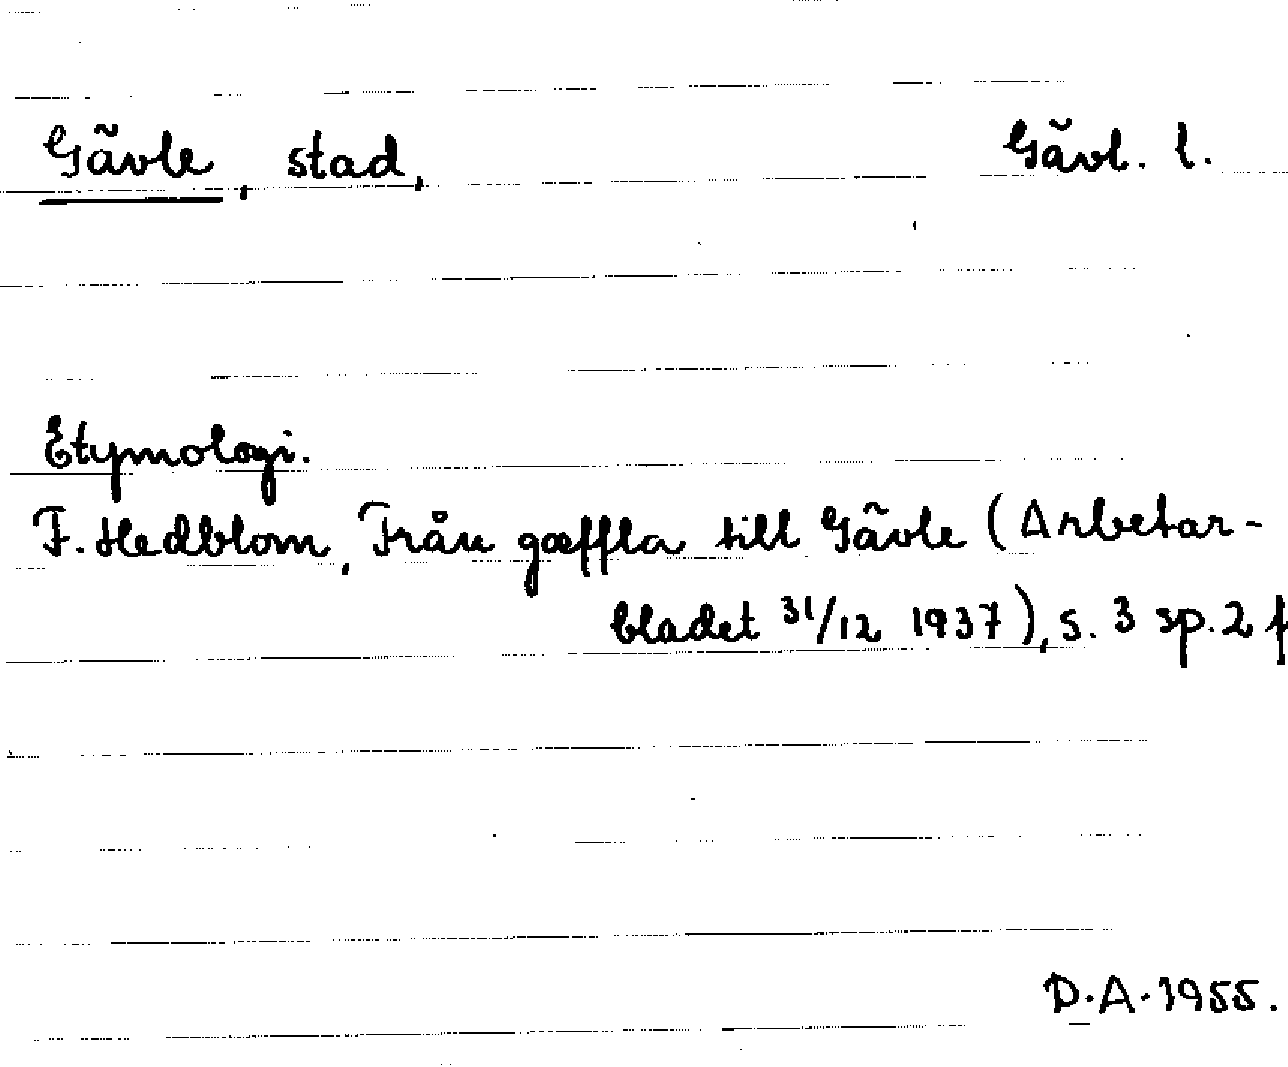 Gävle, stad, Gävl. l.
Etymologi.
F. Hedblom, Från gæffla till Gävle (Arbetar-
bladet 31/12 1937), s. 3 sp. 2 f
D.A. 1955.